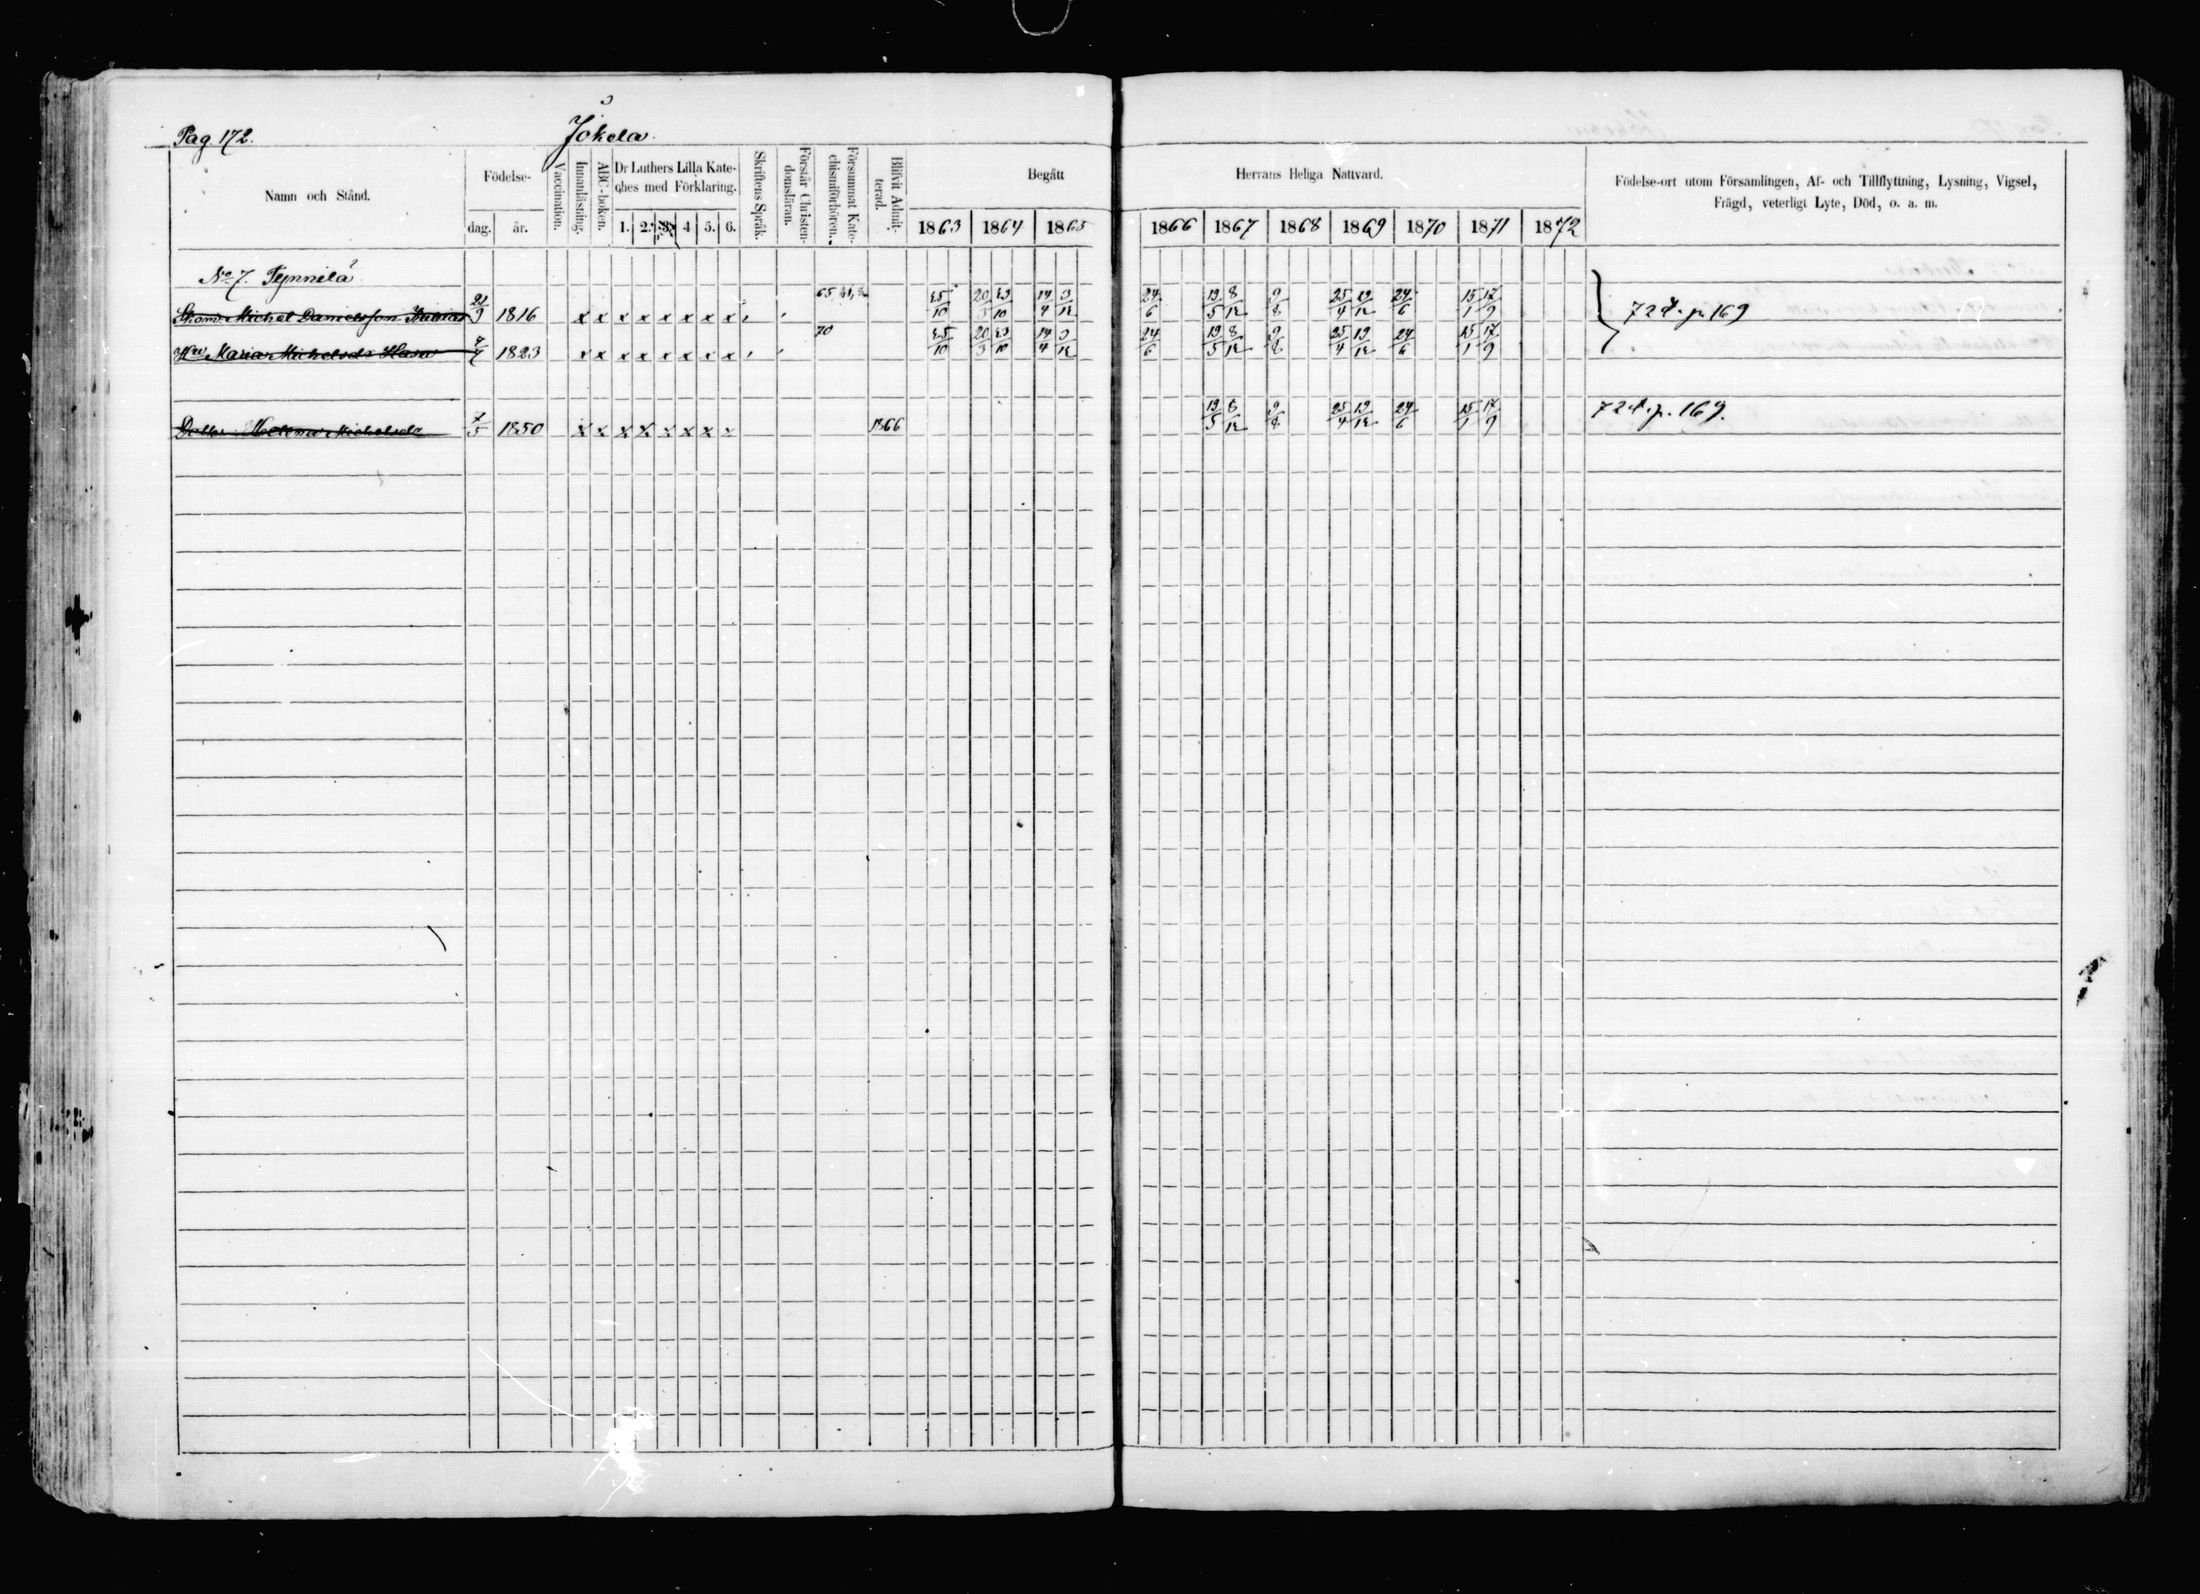 Pag 172.
Jokela
Namn och Stånd.
Födelse-
dag. år.
Vaccination.
Innanläsning.
ABC-boken.
Dr Luthers Lilla Kate-
ches med Förklaring.
1. 2. 3. 4 5. 6.
Skriftens Språk.
Förstår Christen-
domsläran.
Försummat Kate-
chismiförhören.
Blifvit Admit-
terad.
Begått
1863 1864 1865
Herrans Heliga Nattvard.
1866 1867 1868 1869 1870 1871 1872
Födelse-ort utom Församlingen, Af- och Tillflyttning, Lysning, Vigsel,
Frägd, veterligt Lyte, Död, o. a. m.
No 7. Tynnilä
Michel Danielsson 21/9 1816 x x x x x x x x 20/3 14/4 3/12 24/6 19/5 8/12 9/8 25/4 19/12 24/6 15/1 17/9 72 p. 169
Hu Maria Michelsdr 1823 x x x x x x x x 70 20/3 14/4 3/12 24/6 19/5 8/12 9/8 25/4 19/12 24/6 15/1 17/9
Michelsdr 7/5 1850 x x x x x x x x 1866 19/5 8/12 9/8 25/4 19/12 24/6 15/1 17/9 72 p. 169.